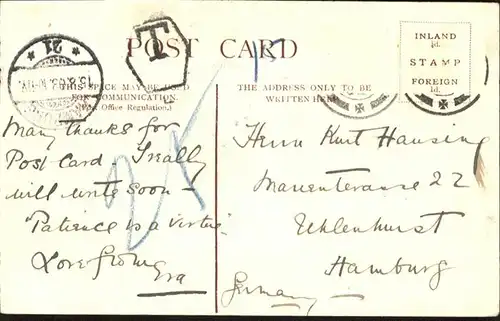 POST CARD
T
21
INLAND
½d.
STAMP
FOREIGN
1d.
THIS SPACE MAY BE USED
FOR COMMUNICATION.
(Post Office Regulation.)
THE ADDRESS ONLY TO BE
WRITTEN HERE
Many thanks for
Post Card. I really
will write soon —
"Patience is a virtue"
Love from
Herrn Kurt Hansing
22
Uhlenhurst
Hamburg
Germany